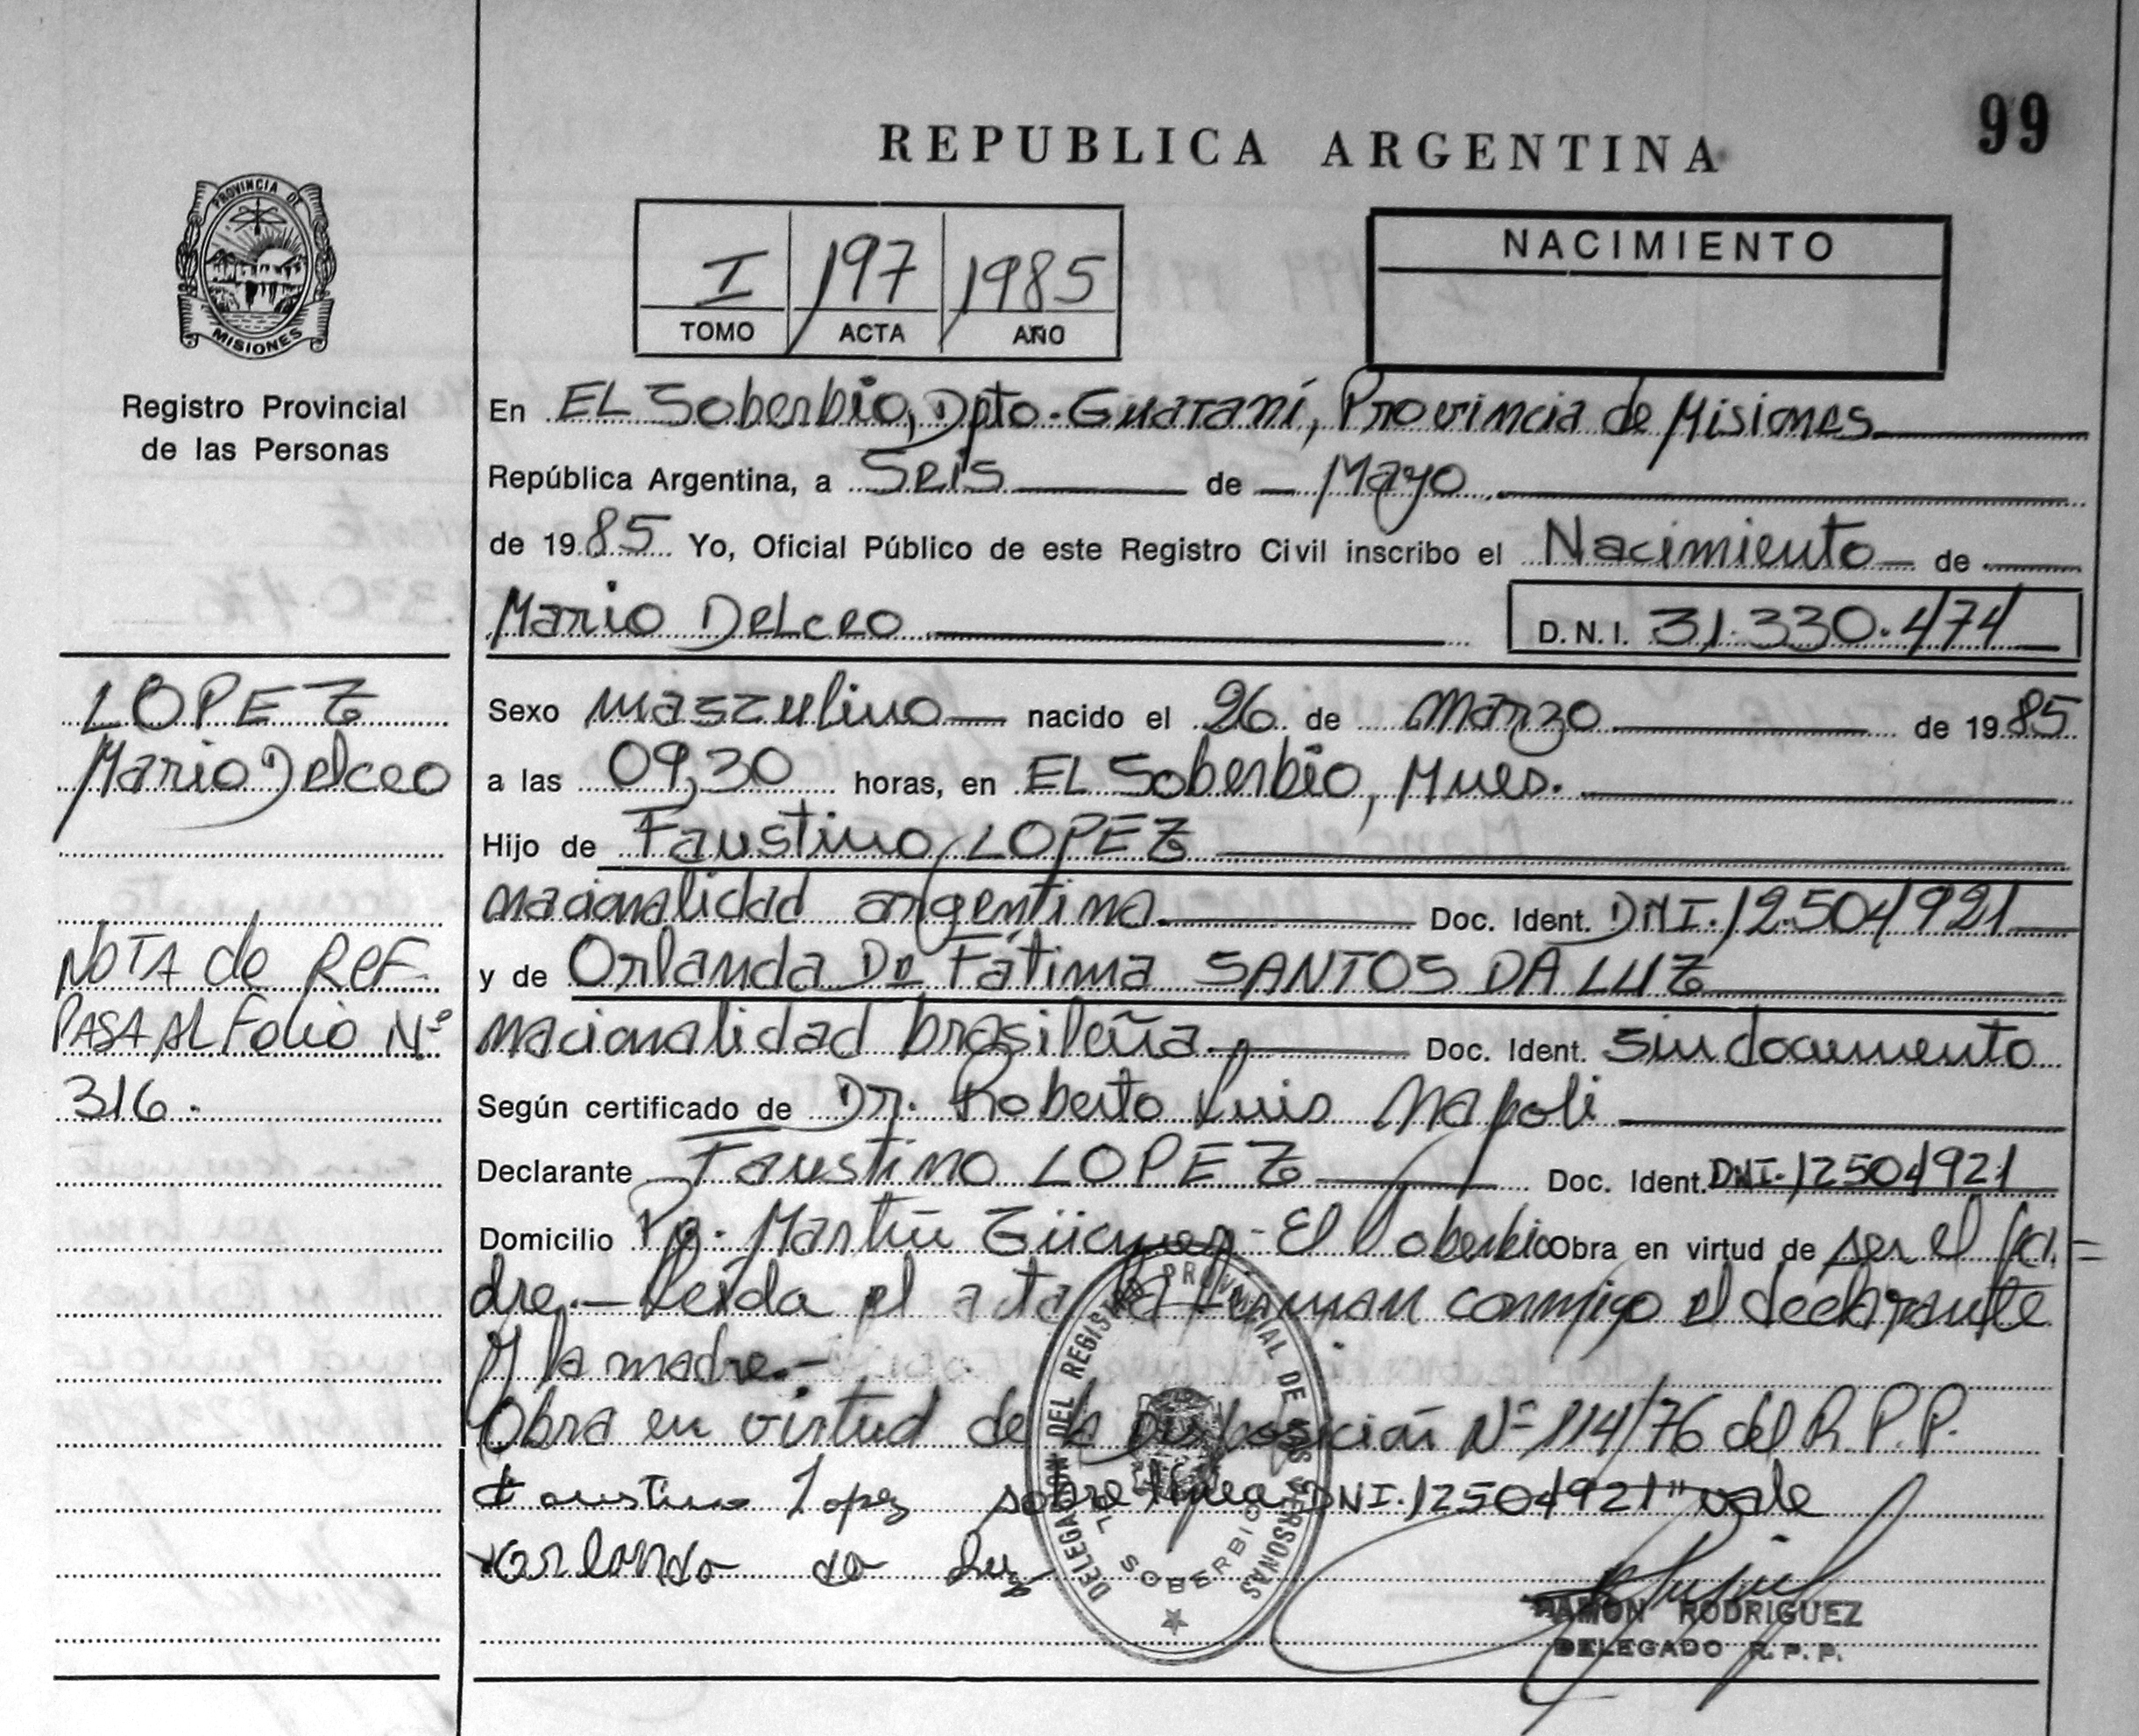 99
REPUBLICA ARGENTINA
PROVINCIA DE
MISIONES
Registro Provincial
de las Personas
I 197 1985
TOMO ACTA AÑO
NACIMIENTO
En EL Soberbio, Dpto. Guaraní, Provincia de Misiones
República Argentina, a Seis de Mayo
de 1985 Yo, Oficial Público de este Registro Civil inscribo el Nacimiento de
Mario Delceo D.N.I. 31.330.474
LOPEZ
Mario Delceo
NOTA de REF.
PASA AL Folio Nº
316.
Sexo masculino nacido el 26 de marzo de 1985
a las 09,30 horas, en EL Soberbio, Mnes.
Hijo de Faustino LOPEZ
nacionalidad argentina. Doc. Ident. DNI. 12504921
y de Orlanda De Fátima SANTOS DA LUZ
nacionalidad brasileña. Doc. Ident. sin documento
Según certificado de Dr. Roberto Luis Napoli
Declarante Faustino LOPEZ Doc. Ident. DNI. 12504921
Domicilio Martín Güemes - El Soberbio Obra en virtud de ser el pa=
dre.- Leída el acta la firman conmigo el declarante
y la madre.-
Obra en virtud de la disposición Nº 114/76 del R.P.P.
Faustino Lopez sobre línea DNI. 12504921" vale
Orlanda da Luz
DELEGACION DEL REGISTRO PROVINCIAL DE LAS PERSONAS
EL SOBERBIO
RAMON RODRIGUEZ
DELEGADO R.P.P.